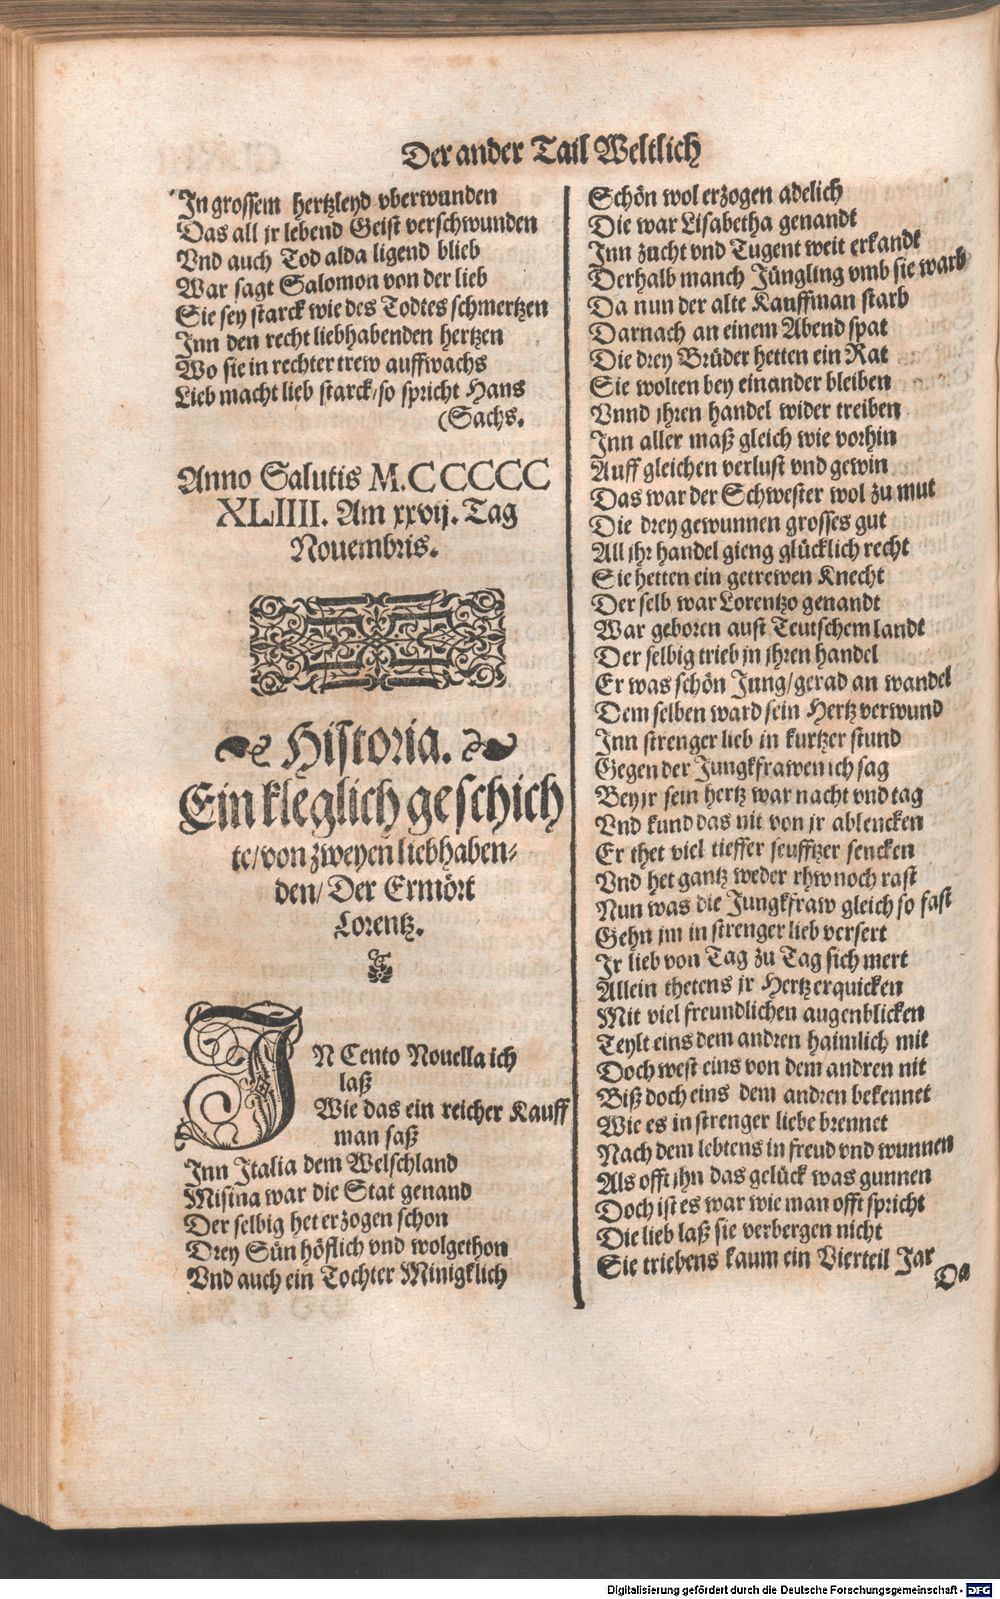 Der ander Tail Weltlich
In grossem hertzleyd vberwunden
Das all jr lebend Geist verschwunden
Vnd auch Tod alda ligend blieb
War sagt Salomon von der lieb
Sie sey starck wie des Todtes schmertzen
Inn den recht liebhabenden hertzen
Wo sie in rechter trew auffwachs
Lieb macht lieb starck/so spricht Hans
(Sachs.
Anno Salutis M.CCCCC
XLIIII. Am xxvij. Tag
Nouembris.
Historia.
Ein kleglich geschich
te/von zweyen liebhaben-
den/Der Ermört
Lorentz.
IN Cento Nouella ich
laß
Wie das ein reicher Kauff
man saß
Inn Italia dem Welschland
Misina war die Stat genand
Der selbig het erzogen schon
Drey Sün höflich vnd wolgethon
Vnd auch ein Tochter Minigklich
Schön wol erzogen adelich
Die war Lisabetha genandt
Inn zucht vnd Tugent weit erkandt
Derhalb manch Jüngling vmb sie warb
Da nun der alte Kauffman starb
Darnach an einem Abend spat
Die drey Brüder hetten ein Rat
Sie wolten bey einander bleiben
Vnnd jhren handel wider treiben
Inn aller maß gleich wie vorhin
Auff gleichen verlust vnd gewin
Das war der Schwester wol zu mut
Die drey gewunnen grosses gut
All jhr handel gieng glücklich recht
Sie hetten ein getrewen Knecht
Der selb war Lorentzo genandt
War geboren aust Teutschem landt
Der selbig trieb jn jhren handel
Er was schön Jung/gerad an wandel
Dem selben ward sein Hertz verwund
Inn strenger lieb in kurtzer stund
Gegen der Jungkfrawen ich sag
Bey jr sein hertz war nacht vnd tag
Vnd kund das nit von jr ablencken
Er thet viel tieffer seufftzer sencken
Vnd het gantz weder rhw noch rast
Nun was die Jungkfraw gleich so fast
Gehn jm in strenger lieb versert
Ir lieb von Tag zu Tag sich mert
Allein thetens jr Hertz erquicken
Mit viel freundlichen augenblicken
Teylt eins dem andren haimlich mit
Doch west eins von dem andren nit
Biß doch eins dem andren bekennet
Wie es in strenger liebe brennet
Nach dem lebtens in freud vnd wunnen
Als offt jhn das gelück was gunnen
Doch ist es war wie man offt spricht
Die lieb laß sie verbergen nicht
Sie triebens kaum ein Vierteil Jar
Da
Digitalisierung gefördert durch die Deutsche Forschungsgemeinschaft - DFG